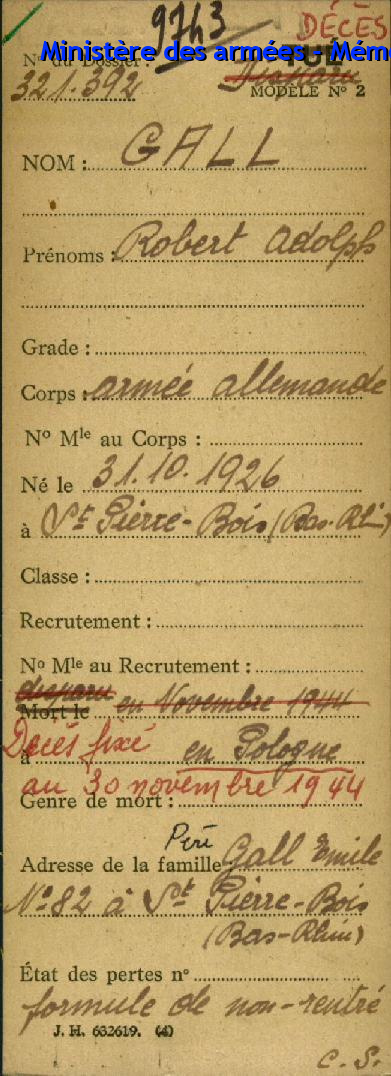 9743
DÉCÈS
Ministère des armées - Mém
N° du Dossier :
321.392
Disparu
MODÈLE N° 2
NOM : GALL
Prénoms : Robert Adolph
Grade :
Corps : armée allemande
N° Mle au Corps :
Né le 31.10.1926
à St Pierre-Bois (Bas-Rhin)
Classe :
Recrutement :
N° Mle au Recrutement :
disparu
Mort le en Novembre 1944
Décès fixé
à en Pologne
au 30 novembre 1944
Genre de mort :
Père
Adresse de la famille Gall Emile
N° 82 à St Pierre-Bois
(Bas-Rhin)
État des pertes n°
formule de non-rentré
J. H. 632619. (4)
C. S.